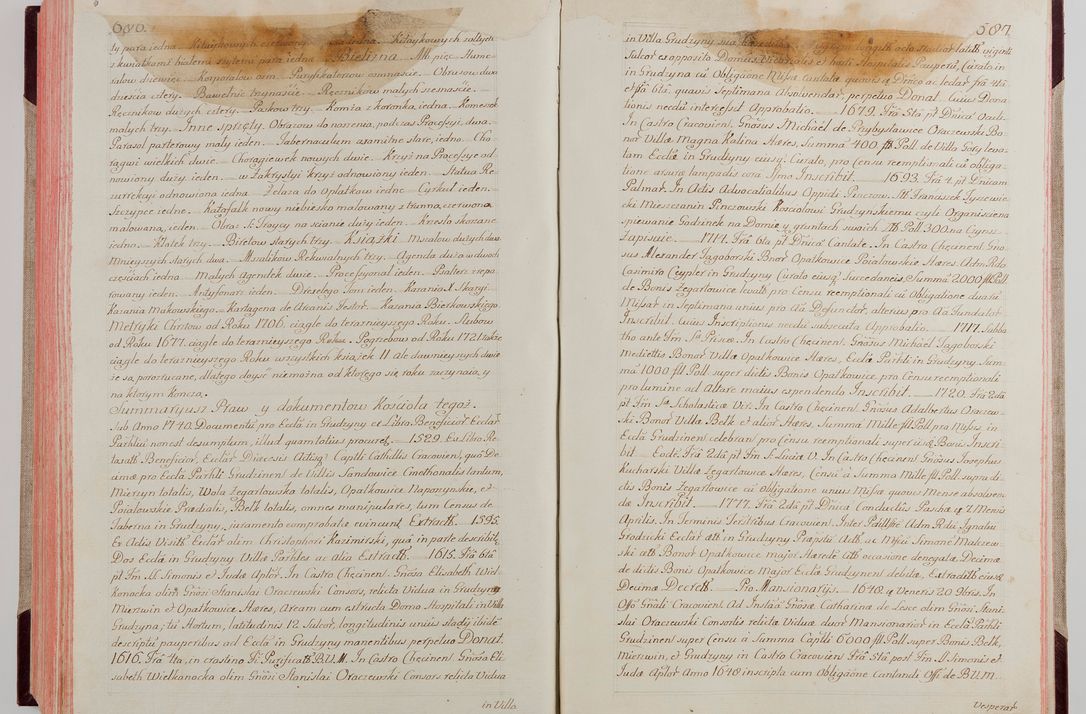 686.
ty para iedna. Kitaykowych czerwonych para iedna. Kitaykowych żołtych
z kwiatkami białemi szytemi para iedna. Bielizna. Alb pięc. Hume-
rałow dziewięc. Korporałow osm. Puryfikaterzow osmnascie. Obrusow dwa
dziescia cztery. Bawełnic trzynaście. Ręcznikow małych szesnascie.
Ręcznikow dużych cztery. Paskow trzy. Komża z koronką iedna. Komeżek
małych trzy. Inne sprzęty. Obrazow do noszenia podczas Processyi dwa.
Parasol parterowy mały ieden. Tabernaculum axamitne stare, iedno. Cho-
rągwi wielkich dwie. Chorągiewek nowych dwie. Krzyż na Processye od-
nowiony duży ieden. w Zakrystyi krzyż odnowiony ieden. Statua Re-
surrekcyi odnowiona iedna. Żelaza do Opłatkow iedne. Cyrkuł ieden.
Szczypce iedne. Katafalk nowy niebiesko malowany z trunną, czerwono
malowaną, ieden. Obraz S. Troycy na scianie duży ieden. Krzesło skorzane
iedno. Klatek trzy. Biretow starych trzy. Książki. Mszałow dużych dwa
Mnieyszych starych dwa. Mszalikow Rekwialnych trzy. Agenda duża w dwoch
częściach iedna. Małych Agendek dwie. Processyonał ieden. Psałterz repa-
rowany ieden. Antyfonarz ieden. Drexelego Tom ieden. Kazania X Skargi.
Kazania Makowskiego. Kartagena de Arcanis Festor. Kazania Bierkowskiego.
Metryki Chrztow od Roku 1706. ciągle do teraznieyszego Roku. Slubow
od Roku 1677. ciągle do teraznieyszego Roku. Pogrzebow od Roku 1721 także
ciągle do teraznieyszego Roku wszystkich książek 11 ale dawnieyszych dwie
że są porozrucane, dlatego doyść niemożna od ktorego się roku zaczynaią, y
na ktorym kończą.
Summaryusz Praw y dokumentow Kościoła tegoż.
Sub Anno 1740. Documentū pro Ecclā in Grudzyny et Libro Beneficior Ecclae
Parhlii non est desumptum, illud quam totius procuret. 1529. Ex Libro Re-
taxatt Beneficior, Ecclar Diœcesis Attisq Captli Cathlis Cracovien, quò De-
umæ pro Eccla Parhli Grudzinen de Villis Sandowice Cmethonales tantum,
Mierzyn totalis, Wola Żegartowska totalis, Opatkowice Naporzynskie, et
Pojałowskie Prædialis, Belk totalis, omnes manipulares, tum Census de
Taberna in Grudzyny, juramento comprobatæ evincunt. Extractt. 1595.
Ex Actis Visitt Ecclar olim Christophori Kazimirski, quā in parte describit
Dos Eccla in Grudzyny Villa Parhles ac alia Extractt. 1615. Frâ 6tâ
pt Fm SS. Simonis et Judæ Aptor. In Castro Chęcinen. Gnosa Elisabeth Wiel-
konocka olim Gnosi Stanislai Oraczewski Consors, relicta Vidua in Grudzyny
Mierzwin et Opatkowice Hæres, Aream cum extructa Domo Hospitali in Villa
Grudzyna; tū Hortum, latitudinis 12 Sulcor, longitudinis unius stadij ibidē
descriptū pauperibus ad Ecclā in Grudzyny manentibus perpetuo Donat.
1616. Frâ 4ta, in crastino Fi Purificatt. B.V.M. In Castro Chęcinen. Gnosa Eli-
sabeth Wielkanocka olim Gnosi Stanislai Oraczewski Consors relicta Vidua
in Villa
687.
in Villa Grudzyny sua hæredita
Sulcor ex opposito Domus Vicarialis et horti Hospitalis Pauperū, Curato in
in Grudzyna cū Obligaōne Missæ cantatæ quavis 4 Dnico ac lectar frâ 4tâ
et frâ 6tâ quavis Septimana Absolvendar, perpetuo Donat. cuius Dona
tionis necdū interfessit Approbatio. 1679. Frâ 5ta pt Dnicā Oculi.
In Castro Cracovien. Gnosus Michaël de Przybysławice Oraczewski Bo-
nor Villæ Magna Kalina Hæres, Summā 400. fl. Poll. de Villa Góry levo-
tam Ecclæ in Grudzyny eiusq Curato, pro Censu reemptionali cū obliga-
tione arsuræ lampadis cora Smo Inscribit. 1693. Frâ 4. pt Dnicam
Palmar. In Actis Advocatialibus Oppidi Pinczow. Ftt Franciszek Tyszewic
cki Mieszczanin Pinczowski Kosciołowi Grudzynskiemu czyli Organiście na
spiewanie Godzinek na Domie y gruntach swoich Ztt Poll 300. na Czynsz
Zapisuie. 1717. Frâ 6ta pt Dnicâ Cantate. In Castro Chęcinen. Gno-
sus Alexander Jagoborski Bnor Opatkowice Pojałowskie Hæres, Adm Rdo
Casimiro Ceypler in Grudzyny Curato eiusq Succedaneis Summā 2000 fl. Poll.
de Bonis Żegartowice levatt, pro Censu reemptionali cū Obligatione duarū
Missar in Septimana unius pro Aā Defunctor, alterius pro Aa Fundator
Inscribit. Cuius Inscriptionis necdū subsecuta Approbatio. 1717. Sabba
tho ante Fm Sta Priscæ. In Castro Chęcinen. Gnosus Michaël Jagoborski
Medietatis Bonor Villæ Opatkowice Hæres, Ecclæ Parhli in Grudzyny Sum-
mā 1000 fl. Poll. super dictis Bonis Opatkowice, pro Censu reemptionali
pro lumine ad Altare maius expendendo Inscribit. 1720. Frâ 2dâ
pt Fm Sta Scholasticæ Vir. In Castro Chęcinen. Gnosus Adalbertus Oraczew-
ski Bonor Villæ Belk et alior Hæres, Summā Mille fl. Poll. pro Missis, in
Ecclā Grudzinen celebran. pro Censu reemptionali super iisd Bonis Inscri-
bit. Eodē Frâ 2dâ pt Fm S. Luciæ V. In Castro Chęcinen Gnosus Josephus
Kucharski Villæ Żegartowice Hæres, Censū à Summa Mille fl. Poll. supra di-
ctis Bonis Żegartowice cū Obligatione unius Missæ quovis Mense absolven-
dæ Inscribit. 1777. Frâ 2dâ pt Dnicâ Conductus Paschæ 4 Mensis
Aprilis. In Terminis Feritibus Cracovien. Inter Perillre Adm. Rdu Ignatiu
Grodzicki Ecclar att. in Grudzyny Præpstu Att. ac Mfcū Simone Malczew-
ski att. Bonor Opatkowice major Hæredē Att. occasione denegatæ Decimæ
de dictis Bonis Opatkowice Major Ecclæ Grudzynen debitæ, Extraditt eiusd
Decimæ Decrett. Pro Mansionarijs. 1640. 4 Veneris 20 9bris. In
Offō Gnali Cracovien. Ad Instâa Gnosæ Catharina de Lesce olim Gnosi Stani-
slai Oraczewski Consortis relicta Vidua duor Mansionarior in Ecclâ Parhli
Grudzinen super Censu à Summa Captli 6000 fl. Poll. super Bonis Belk,
Mierzwin, et Grudzyny in Castro Cracovien Frâ 5tâ post Fm SS. Simonis et
Judæ Aptor Anno 1640 inscripta cum Obligaōne Cantandi Offi. de B.V.M.
Vesperar